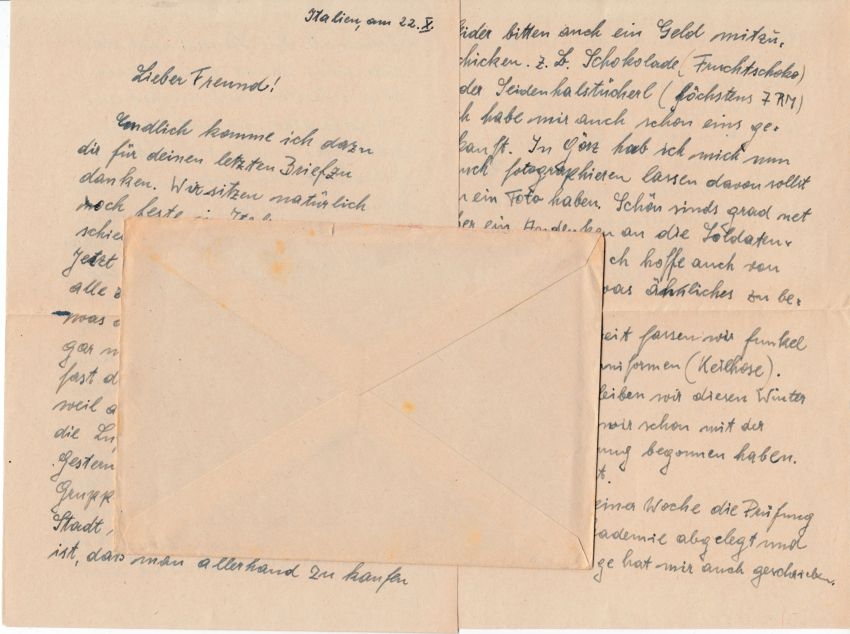 Italien, am 22. X.
Lieber Freund!
Endlich komme ich dazu
dir für deinen letzten Brief zu
danken. Wir sitzen natürlich
noch feste in
schie
Jetzt
alle
was
gar
fast d
weil a
die Lu
Gestern
Grupp
Stadt
ist, dass man allerhand zu kaufen
eider bitten auch ein Geld mitzu-
chicken. z. B. Schokolade (Fruchtschoko)
der Seidenhalstücherl (höchstens 7 RM)
h habe mir auch schon eins ge-
kauft. In Görz hab ich mich nun
uch fotographieren lassen davon sollst
ein Foto haben. Schön sinds grad net
ber ein Andenken an die Soldaten-
ch hoffe auch von
was ähnliches zu be-
eit fassen wir funkel
niformen (Keilhose).
leiben wir diesen Winter
wir schon mit der
ung begonnen haben.
t.
einer Woche die Prüfung
ademie abgelegt und
ge hat mir auch geschrieben.